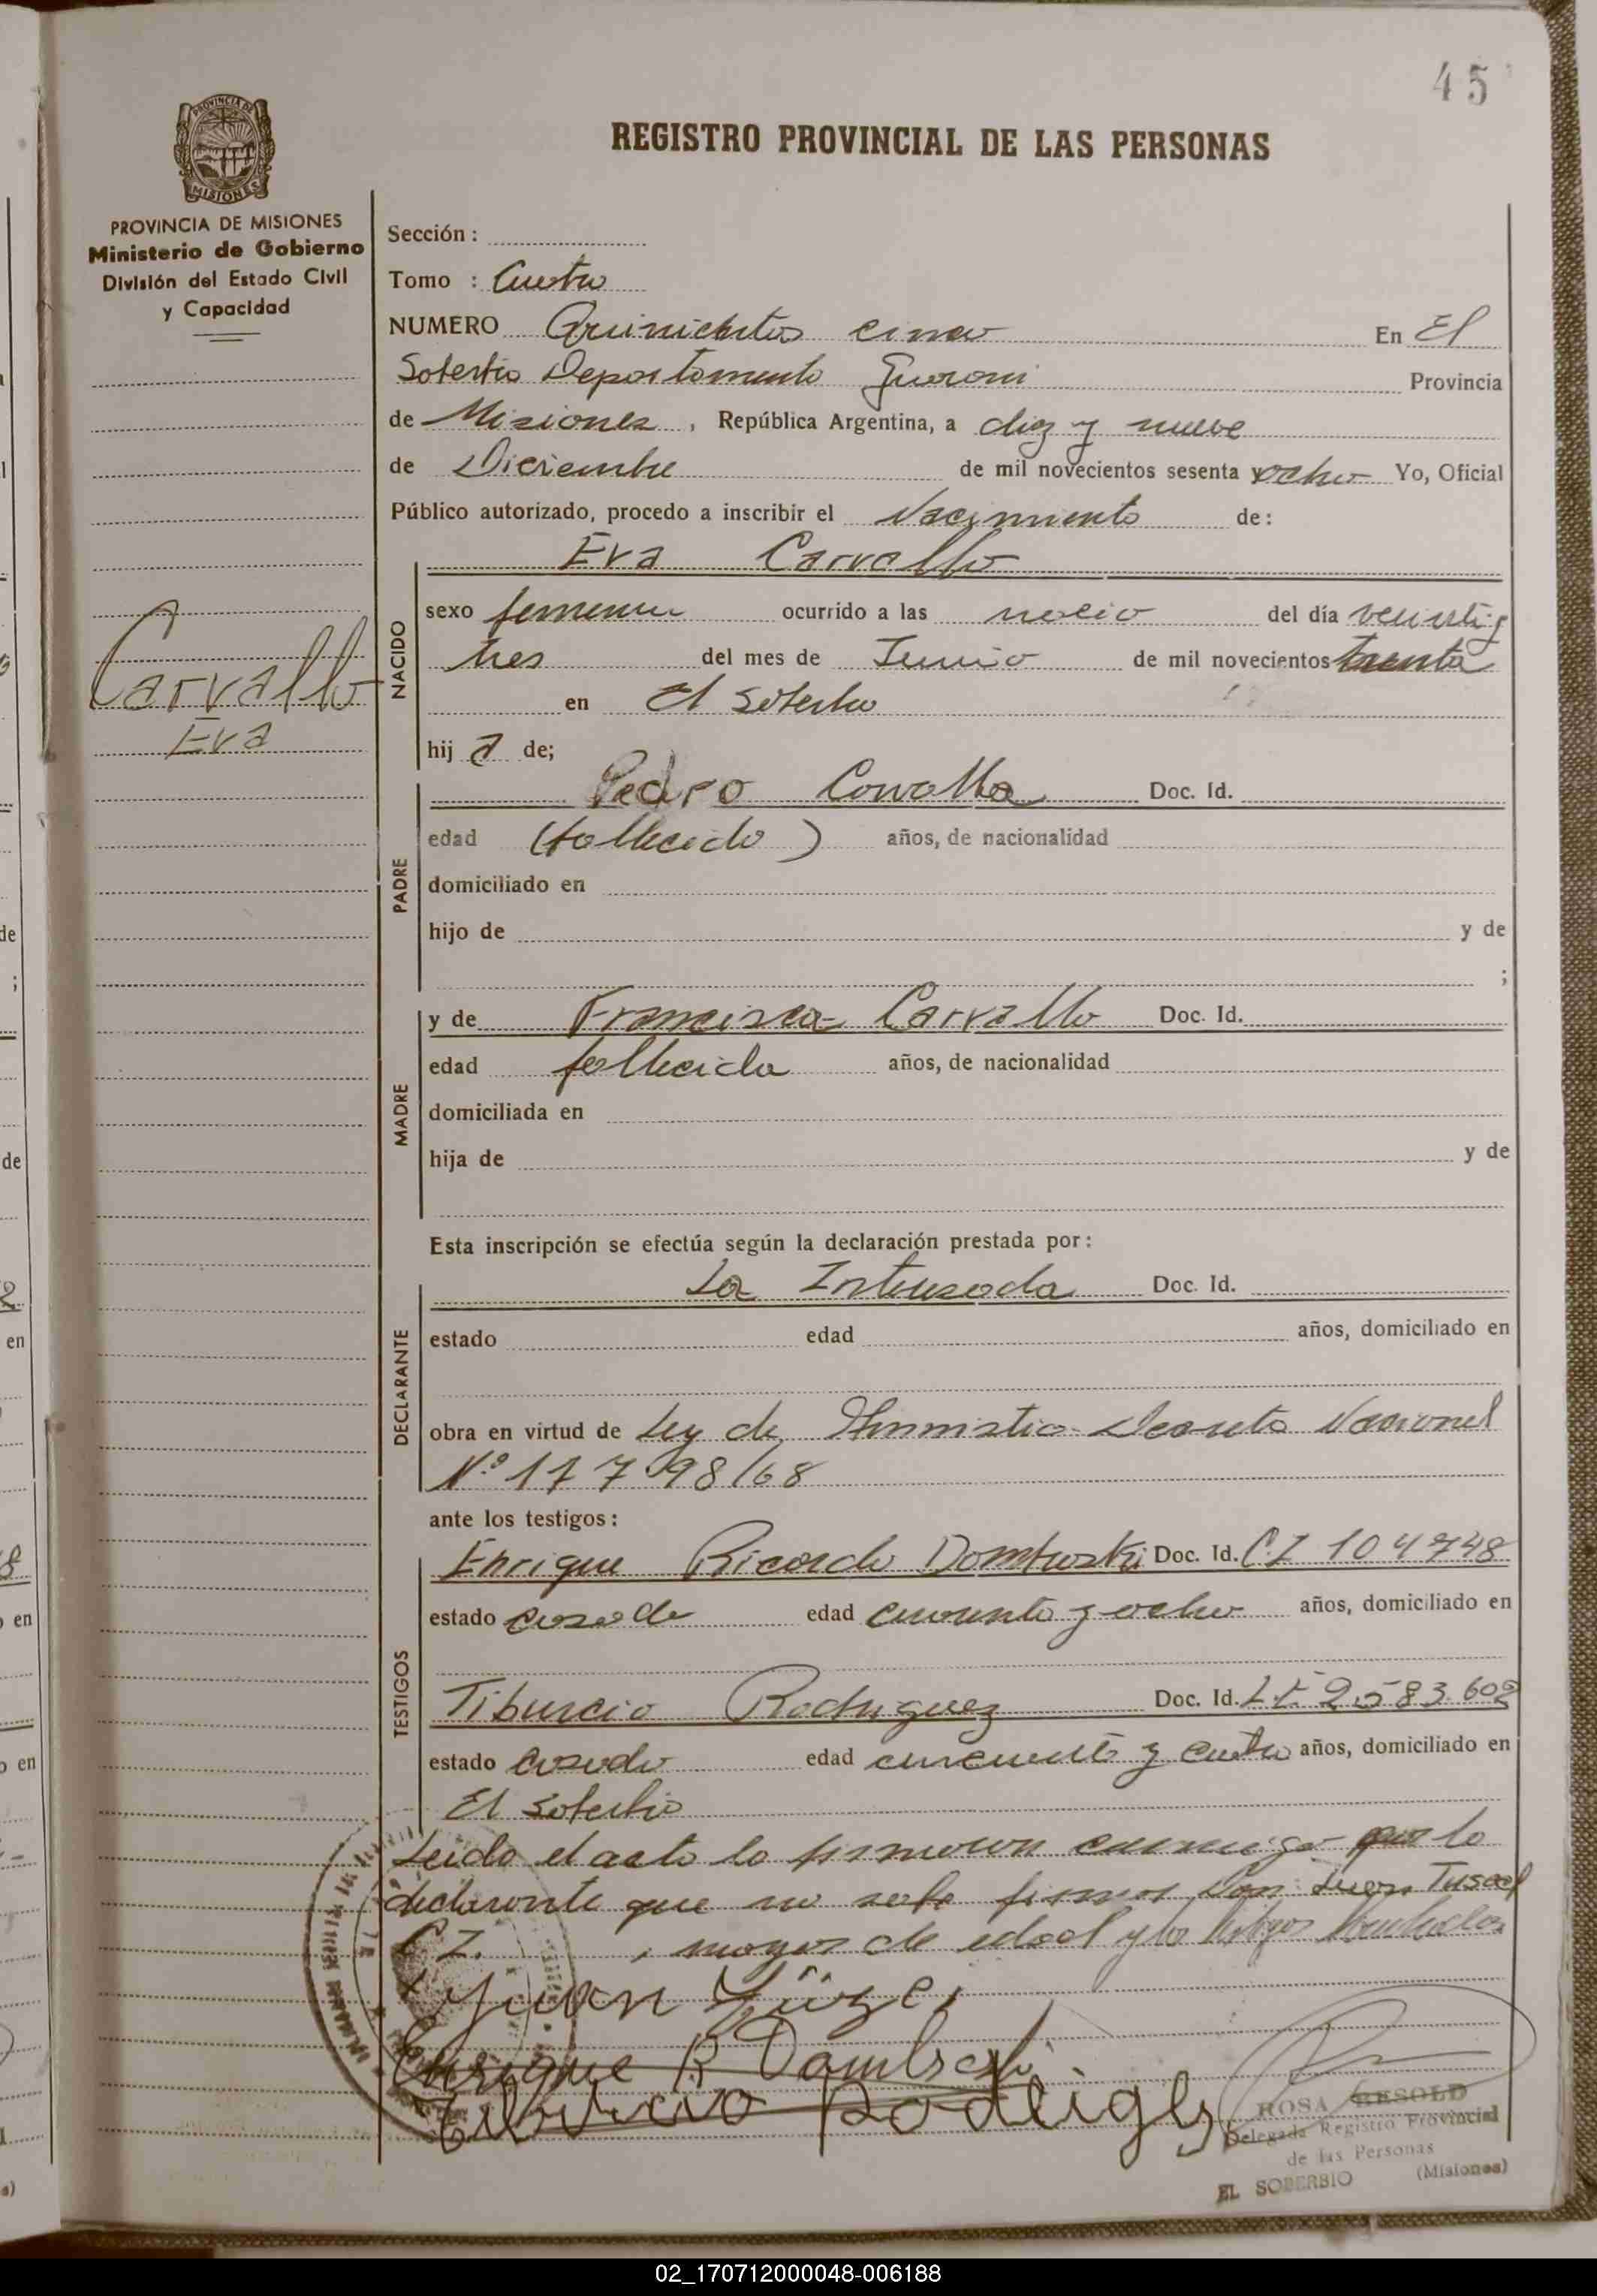 45
REGISTRO PROVINCIAL DE LAS PERSONAS
PROVINCIA DE MISIONES
MISIONES
PROVINCIA DE MISIONES
Ministerio de Gobierno
División del Estado Civil
y Capacidad
Sección :
Tomo : Cuatro
NUMERO Quinientos cinco En El
Soberbio Departamento Guarani Provincia
de Misiones, República Argentina, a diez y nueve
de Diciembre de mil novecientos sesenta y ocho Yo, Oficial
Público autorizado, procedo a inscribir el Nacimiento de:
Eva Carvallo
NACIDO
sexo femenino ocurrido a las del día veinti y
tres del mes de Junio de mil novecientos treinta
en El Soberbio
hij a de;
Carvallo
Eva
PADRE
Pedro Carvallo Doc. Id.
edad (fallecido) años, de nacionalidad
domiciliado en
hijo de y de
;
MADRE
y de Francisca Carvallo Doc. Id.
edad fallecida años, de nacionalidad
domiciliada en
hija de y de
Esta inscripción se efectúa según la declaración prestada por:
DECLARANTE
La Interesada Doc. Id.
estado edad años, domiciliado en
obra en virtud de Ley de Amnistia Decreto Nacional
Nº 17798/68
ante los testigos:
TESTIGOS
Enrique Ricardo Dombroski Doc. Id. C.I 104748
estado casado edad cuarenta y ocho años, domiciliado en
Tiburcio Rodriguez Doc. Id. L.E 2583.602
estado casado edad cincuenta y cuatro años, domiciliado en
El Soberbio
Leida el acta la firmaron conmigo por la
declarante que no sabe firmar Don Juan
C I. , mayor de edad y los testigos
Juan
Enrique R Dombroski
Tiburcio Rodrigez
ROSA RESOLD
Delegada Registro Provincial
de las Personas
EL SOBERBIO (Misiones)
02_170712000048-006188